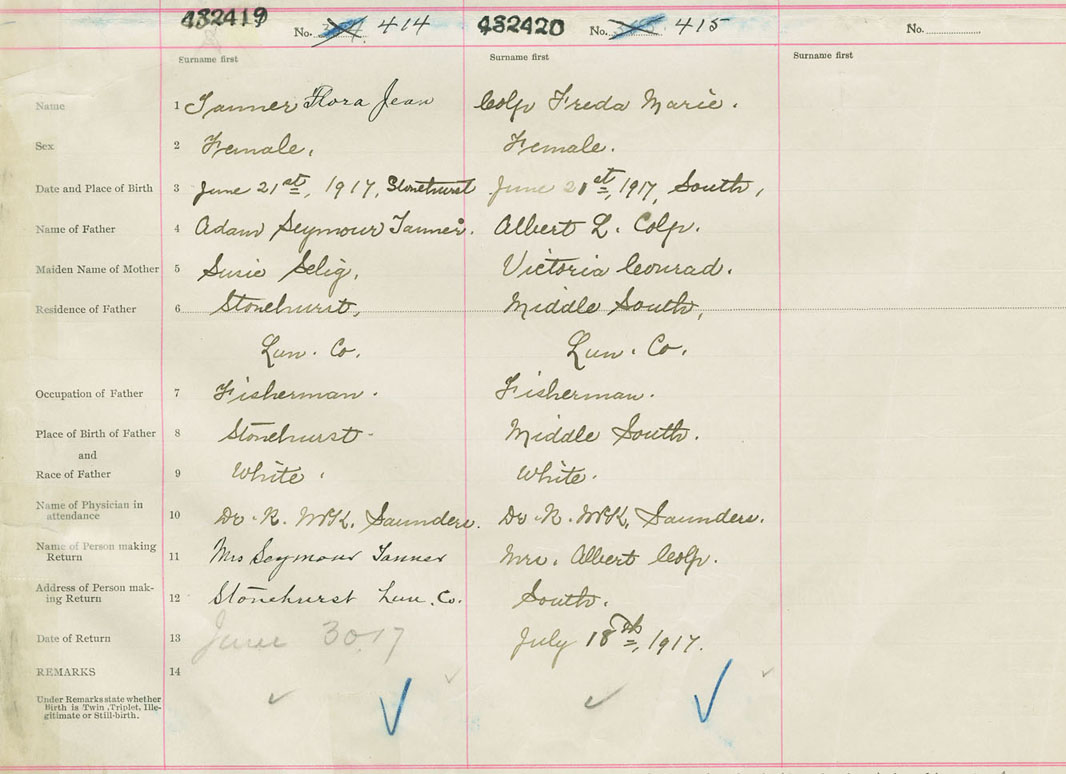 432419 No. 414 432420 No. 415 No.
Surname first Surname first Surname first
Name 1 Tanner Flora Jean Colp Freda Marie.
Sex 2 Female. Female.
Date and Place of Birth 3 June 21st, 1917, Stonehurst June 21st, 1917, South,
Name of Father 4 Adam Seymour Tanner. Albert L. Colp.
Maiden Name of Mother 5 Susie Selig. Victoria Conrad.
Residence of Father 6 Stonehurst, Middle South,
Lun. Co. Lun. Co.
Occupation of Father 7 Fisherman. Fisherman.
Place of Birth of Father 8 Stonehurst. Middle South.
and
Race of Father 9 White. White.
Name of Physician in
attendance 10 Dr. R. McK. Saunders. Dr. R. McK. Saunders.
Name of Person making
Return 11 Mrs Seymour Tanner Mrs. Albert Colp.
Address of Person mak-
ing Return 12 Stonehurst Lun. Co. South.
Date of Return 13 June 30 17 July 18th, 1917.
REMARKS 14
Under Remarks state whether
Birth is Twin, Triplet, Ille-
gitimate or Still-birth.